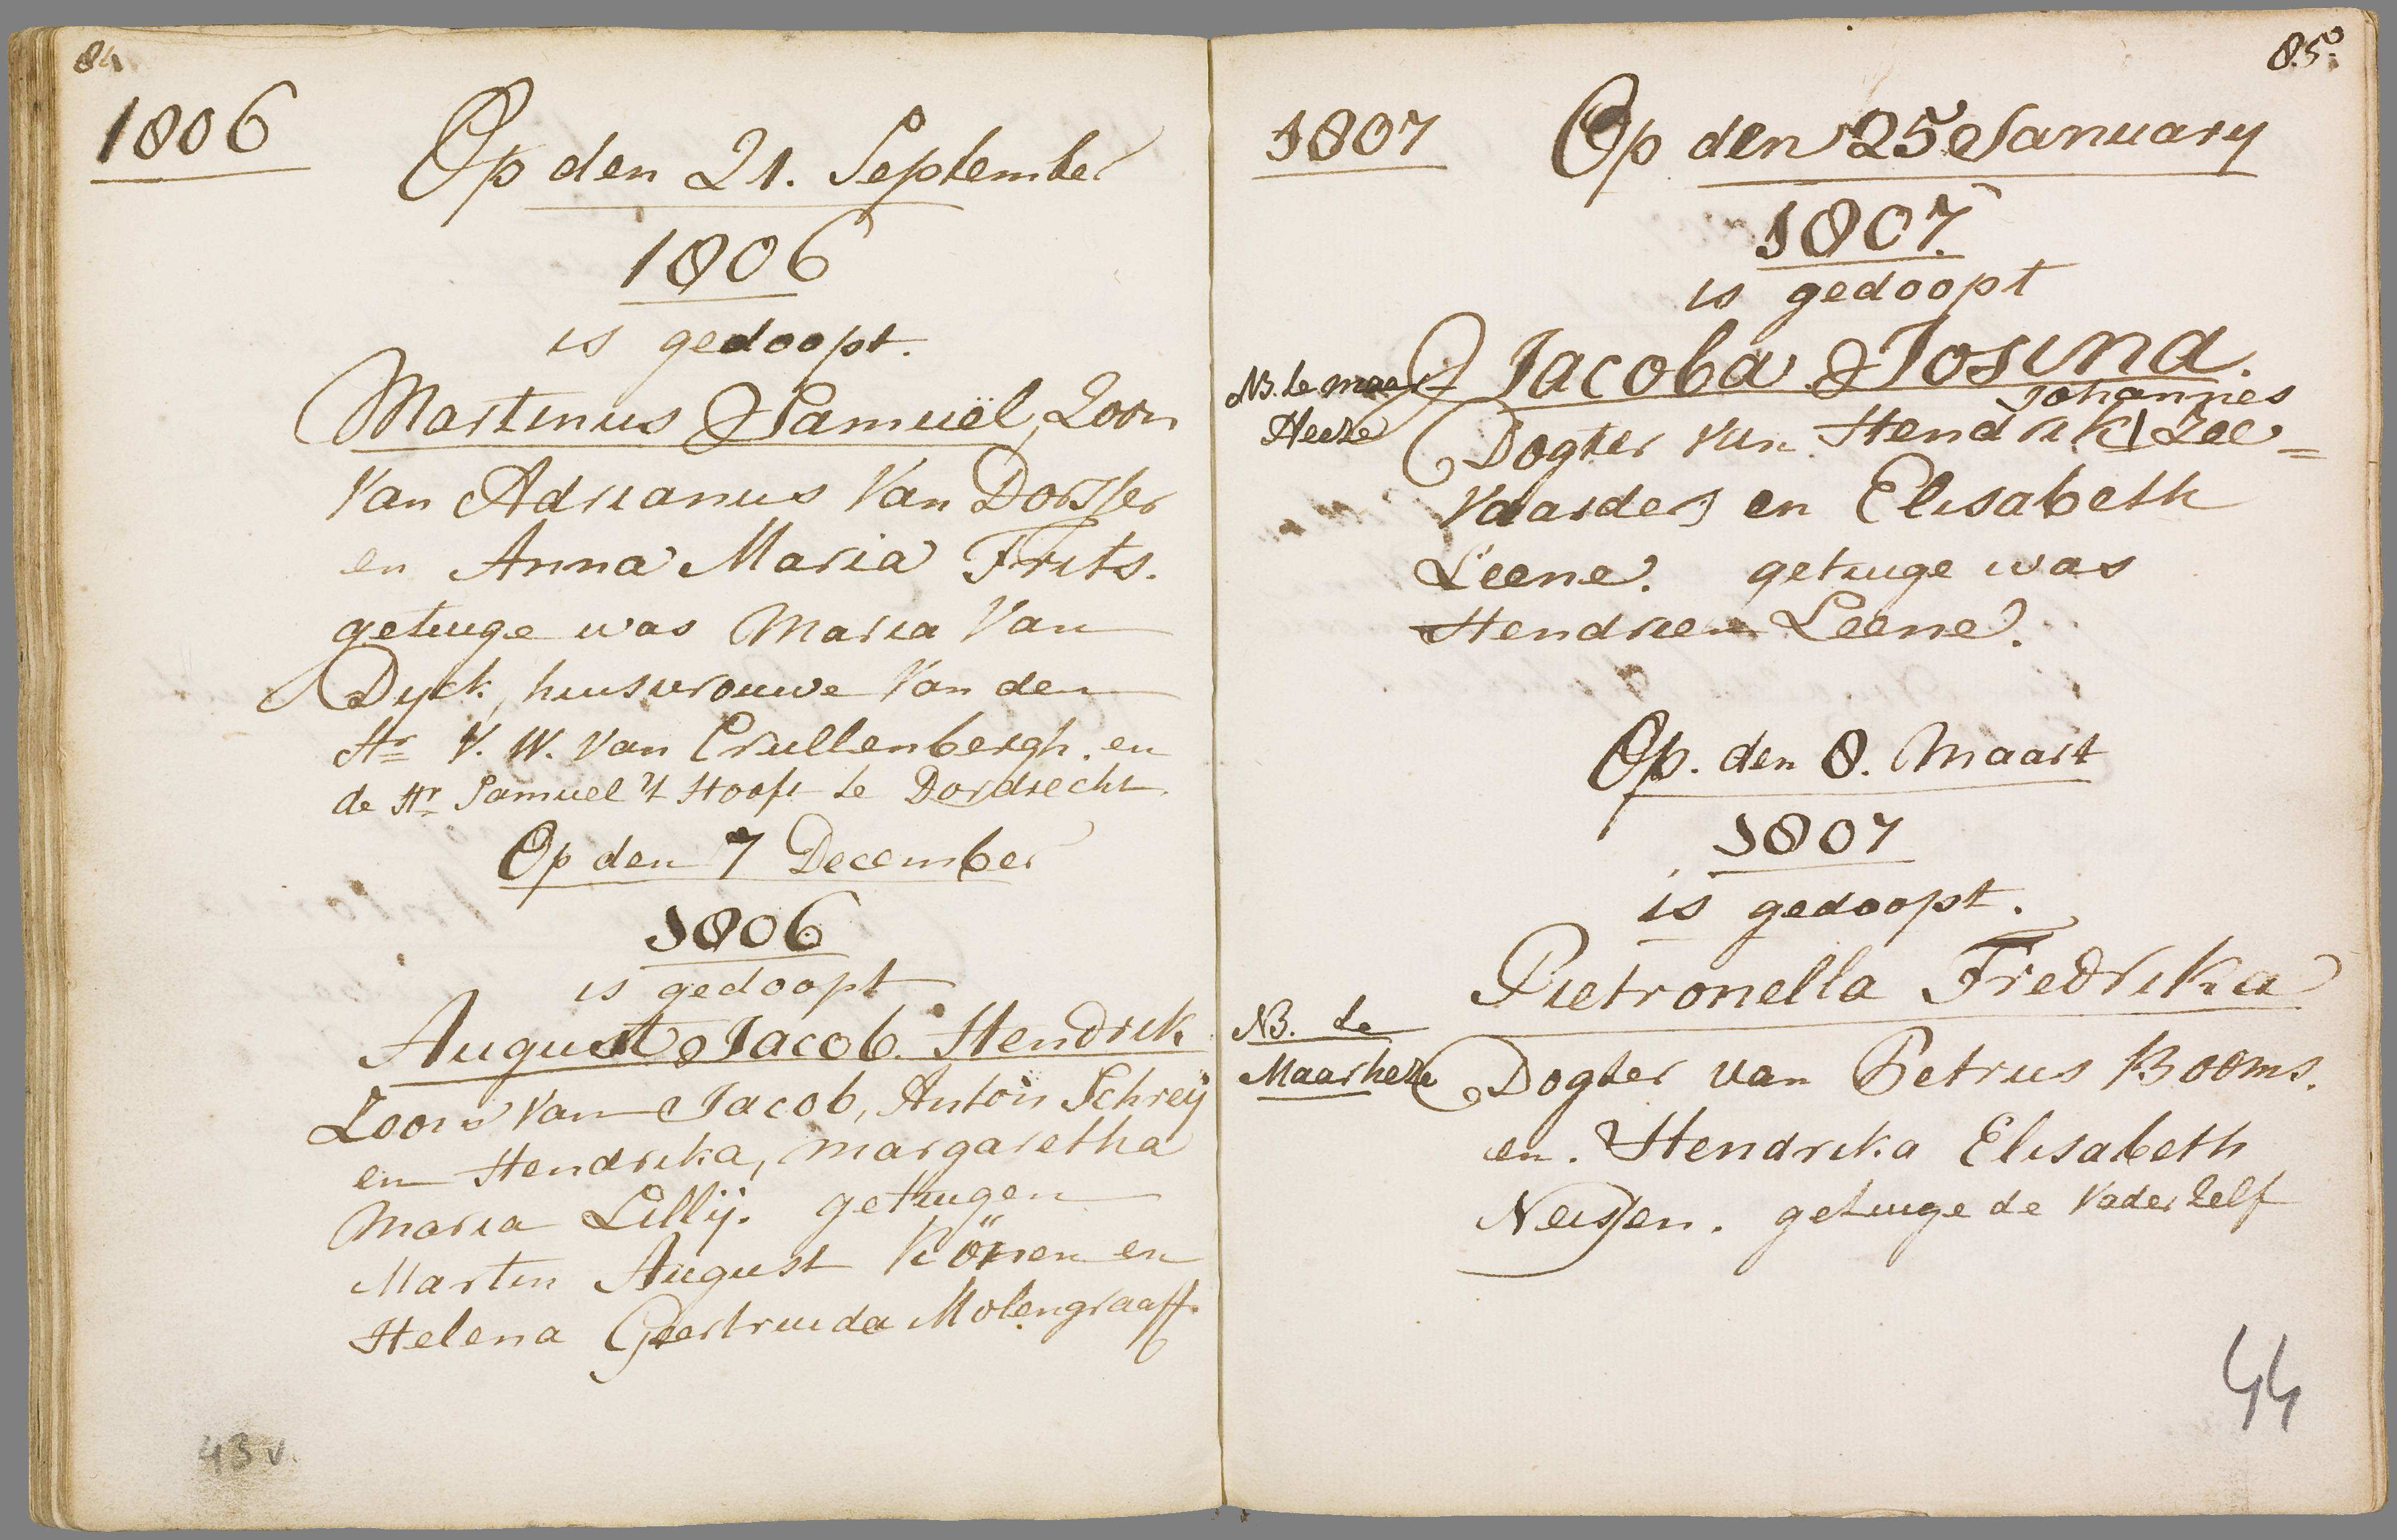 84
1806
Op den 21. September
1806
is gedoopt.
Martinus Samuël, Zoon
Van Adrianus Van Dorsser
en Anna Maria Frits.
getuige was Maria Van
Dyck, huisvrouwe Van den
Hr V. W. Van Crullenbergh. en
de Hr Samuel 't Hooft te Dordrecht.
Op den 7 December
1806
is gedoopt
August Jacob Hendrik
Zoon Van Jacob, Anton Schreij
en Hendrika, Margaretha
Maria Lillij. getuigen
Martin August en
Helena Geertruida Molengraaff.
43 v.
85.
1807
Op den 25 January
1807.
is gedoopt
Jacoba Josina.
NB. te maar
Heeze
Johannes
Dogter van Hendrik Zee=
Vaarder en Elisabeth
Leene. getuige was
Leene.
Op. den 8. Maart
1807
is gedoopt.
Pietronella Fredrika
NB. te
Maarheze
Dogter van Petrus Booms.
en. Hendrika Elisabeth
Neissen. getuige de Vader zelf
44